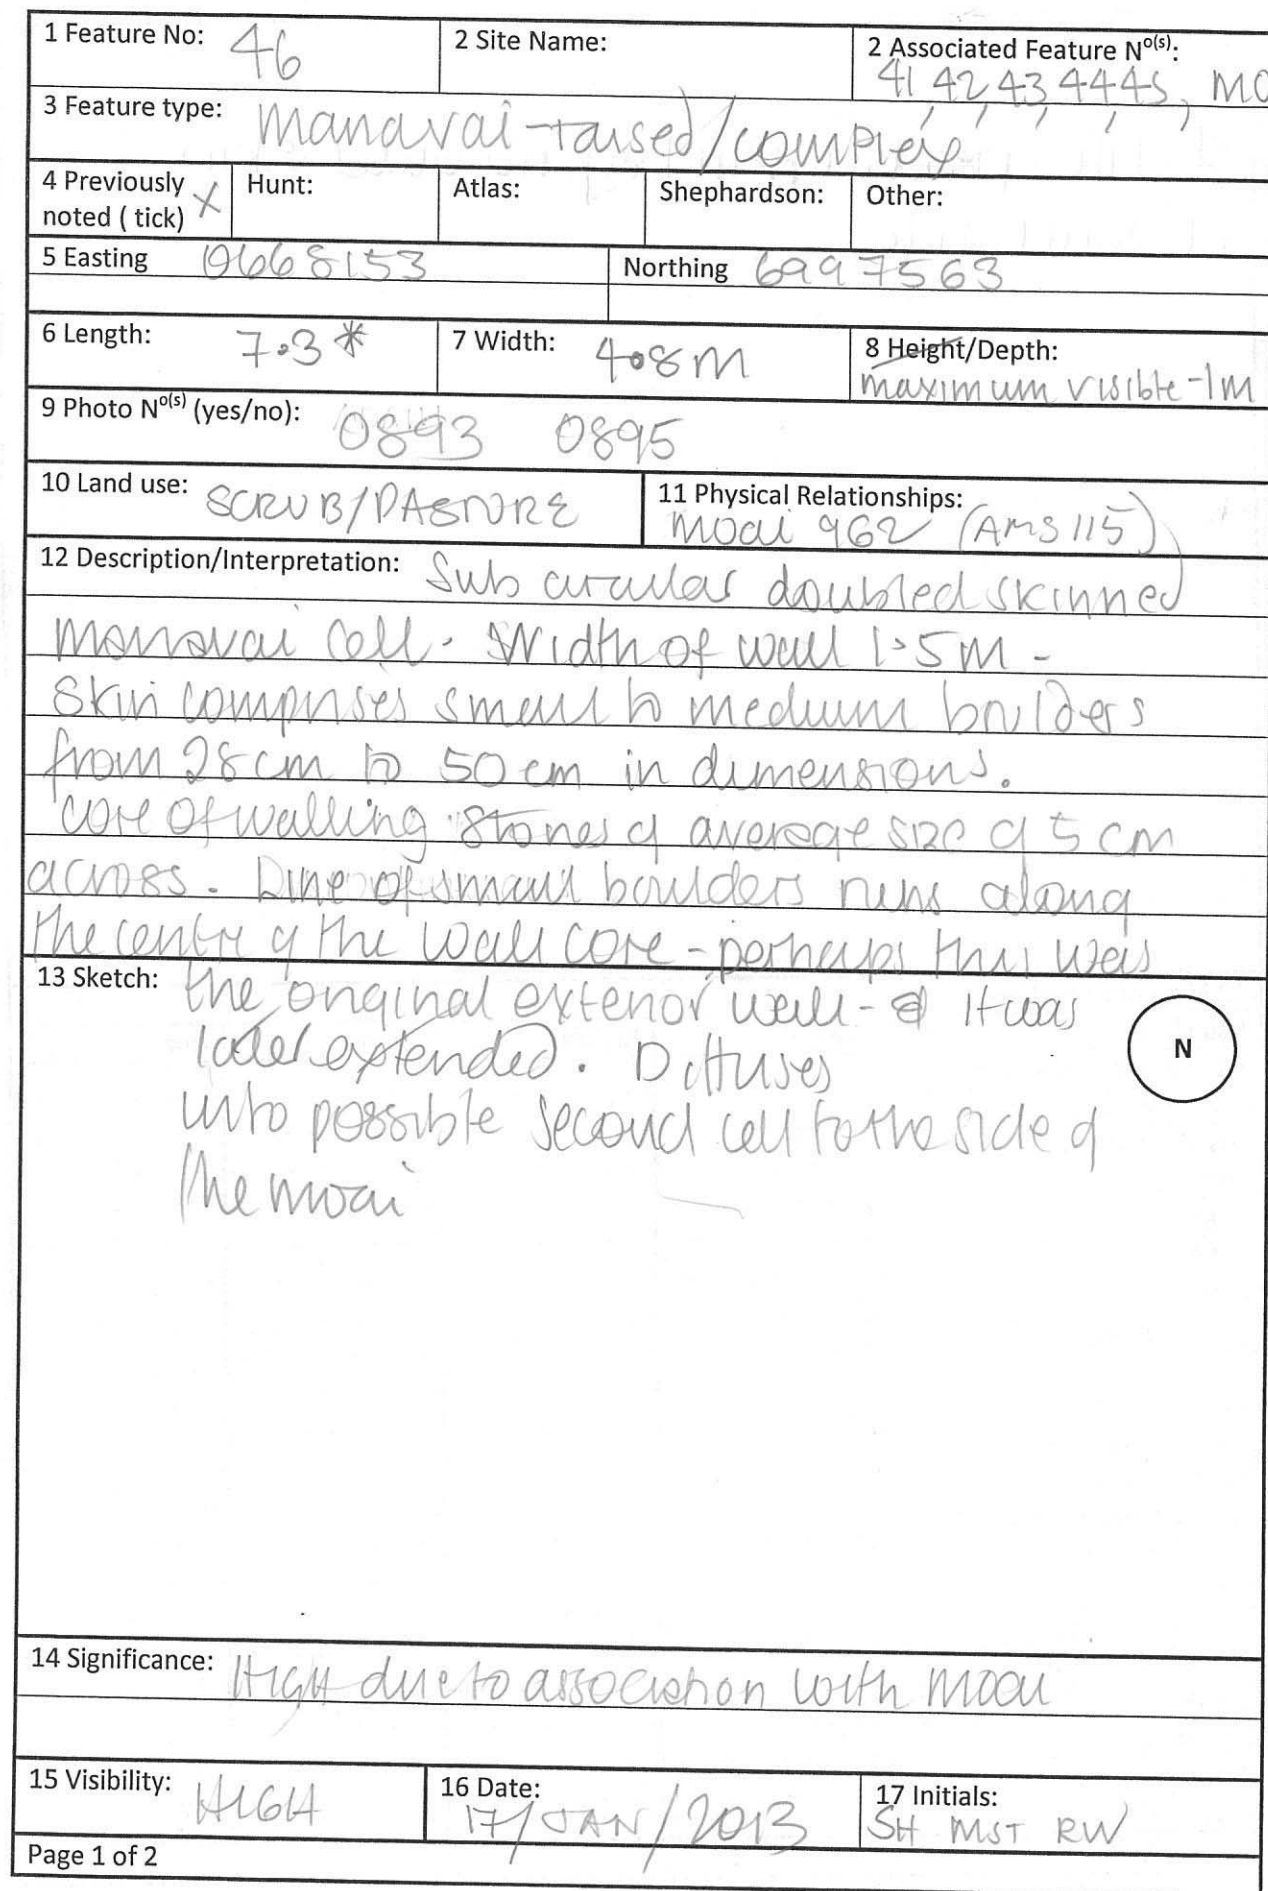 1 Feature No: 46
2 Site Name:
2 Associated Feature No(s): 41, 42, 43, 44, 45, MO
3 Feature type: Manavai - raised/complex
4 Previously noted ( tick) X
Hunt:
Atlas:
Shephardson:
Other:
5 Easting 0668153
Northing 6997563
6 Length: 7.3*
7 Width: 4.8m
8 Height/Depth: maximum visible - 1m
9 Photo No(s) (yes/no): 0893 0895
10 Land use: SCRUB/PASTURE
11 Physical Relationships: Moai 962 (AMS 115)
12 Description/Interpretation: Sub circular doubled skinned
manavai cell. Width of wall 1.5m -
Skin comprises small to medium boulders
from 28cm to 50cm in dimensions.
core of walling stones of average size of 5cm
across. Line of small boulders runs along
the centre of the wall core - perhaps this was
13 Sketch: the original exterior wall - it was
N
later extended. Diffuses
into possible second cell to the side of
the moai
14 Significance: HIGH due to association with moai
15 Visibility: HIGH
16 Date: 17/JAN/2013
17 Initials: SH MST RW
Page 1 of 2